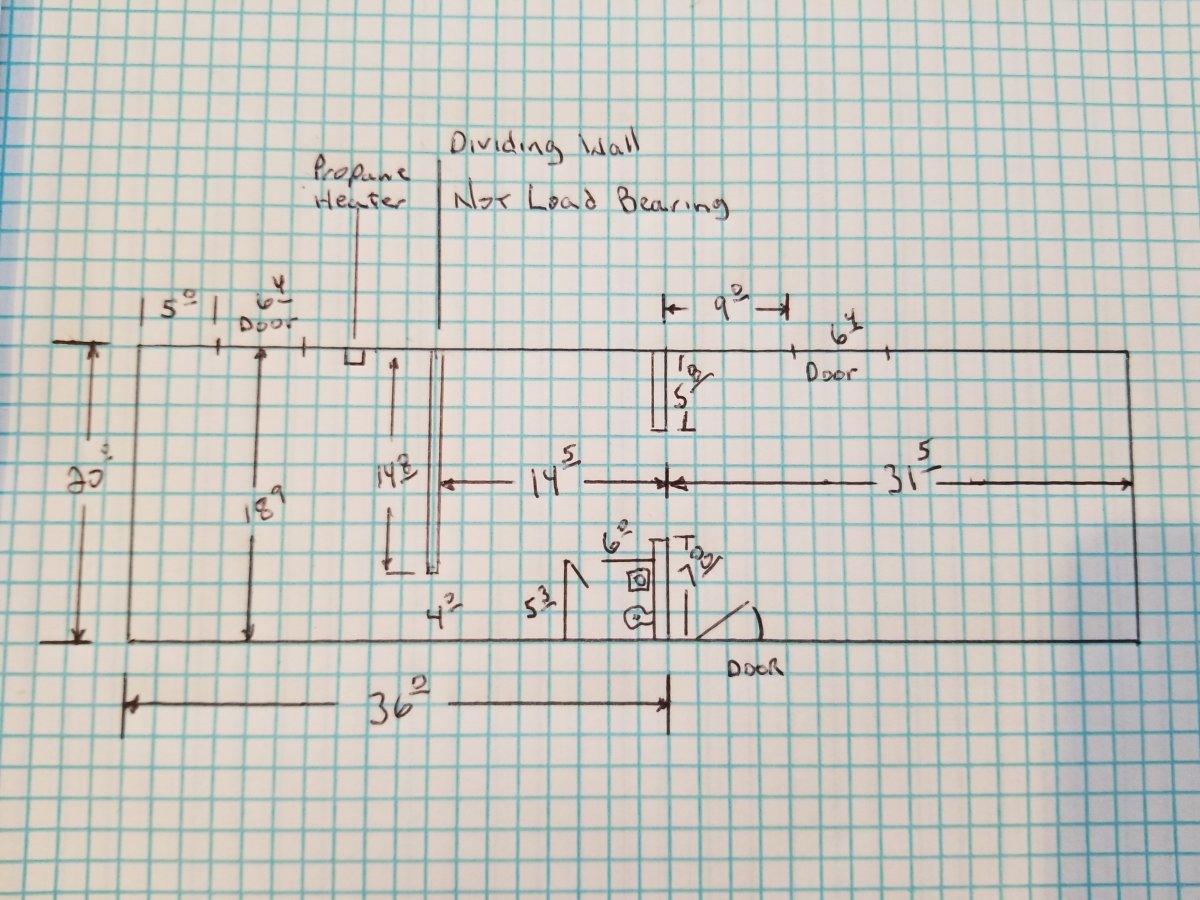 Dividing Wall
Propane
Heater
Not Load Bearing
5 0
6 4
Door
9 0
6 4
Door
5
20
18 9
14 8
14 5
31 5
6 0
7
5 3
4 0
DOOR
36 0